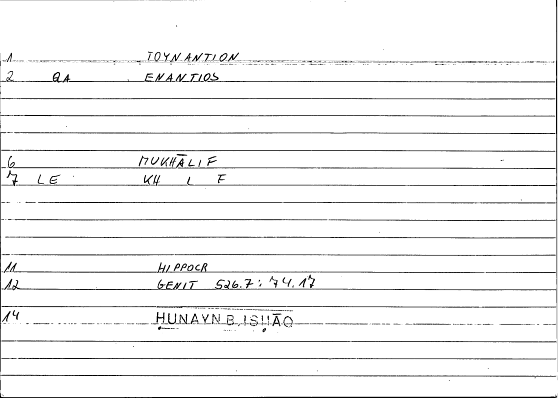 1 TOYNANTION
2 QA ENANTIOS
6 MUKHĀLIF
7 LE KH L F
11 HIPPOCR
12 GENIT 526.7: 74.17
14 ḤUNAYN B. ISḤĀQ